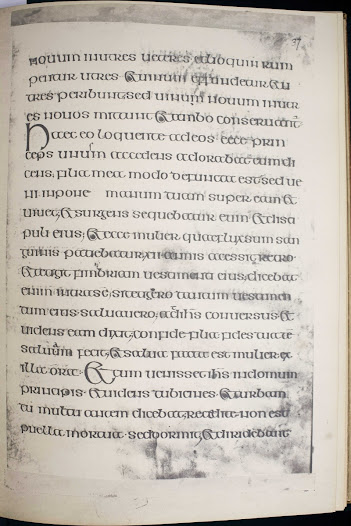 nouum in utres ueteres alioquin rum
pentur utres & uinum effundetur & u
tres peribunt sed uinum nouum in utr
es nouos mittunt & ambo conseruant
haec eo loquente ad eos ecce prin
ceps unus accedens adorabat eum di
cens, filia mea modo defuncta est sed ue
ni inpone manum tuam super eam &
uiuet, & surgens sequebatur eum & disci
puli eius; & ecce mulier quae fluxum san
guinis patiebatur, xii annis accessit, retro
& tetigit fimbriam uestimenti eius, dicebat
enim intra se, si tetigero tantum uestimen
tum eius saluauero, ad ihs conuersus &
uidens eam dixit, confide filia fides tua te
saluam fecit, & salua facta est mulier ex
illa ora. & cum uenisset ihs in domum
principis & uidens tubicines & turbam
tu multu antem dicebat, recedite non est
puella mortua sed dormit, & deridebant